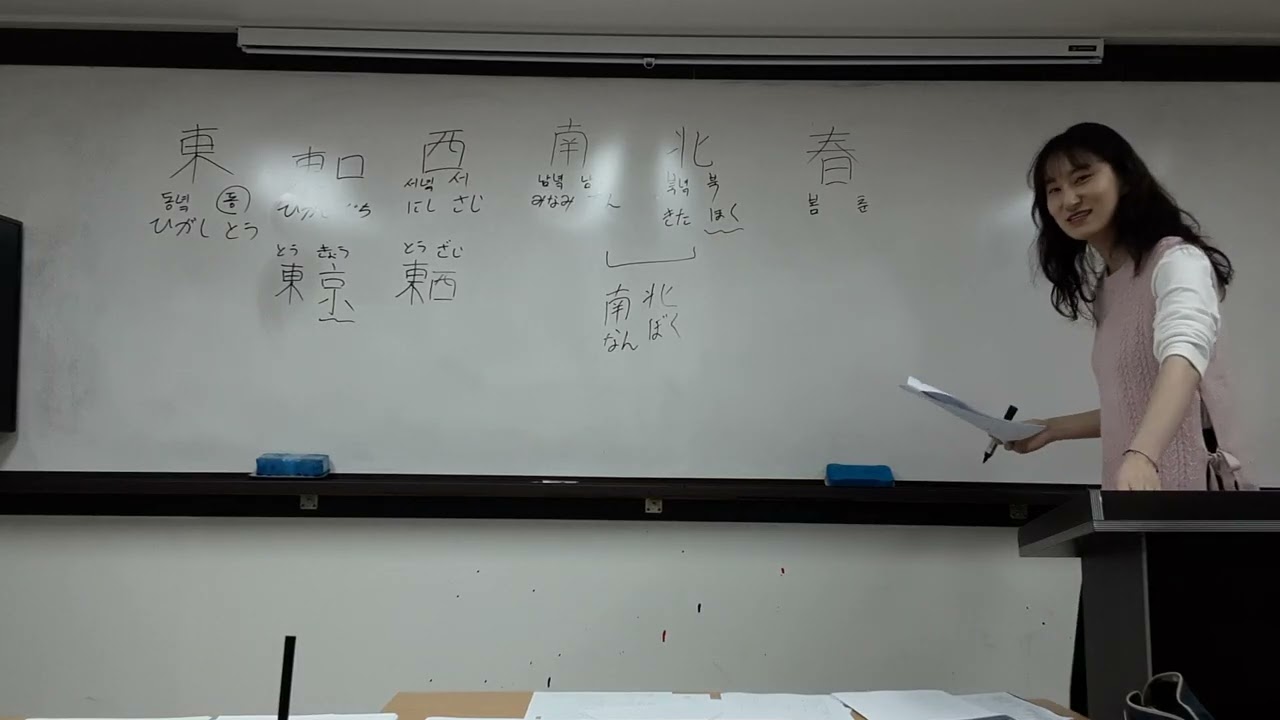 東 東口 西 南 北 春
동녘 동 서녘 서 남녘 남 북녘 북 봄 춘
ひがし とう にし さじ みなみ きた ほく
とう きょう とう ざじ
東 京 東西
南 北
なん ぼく